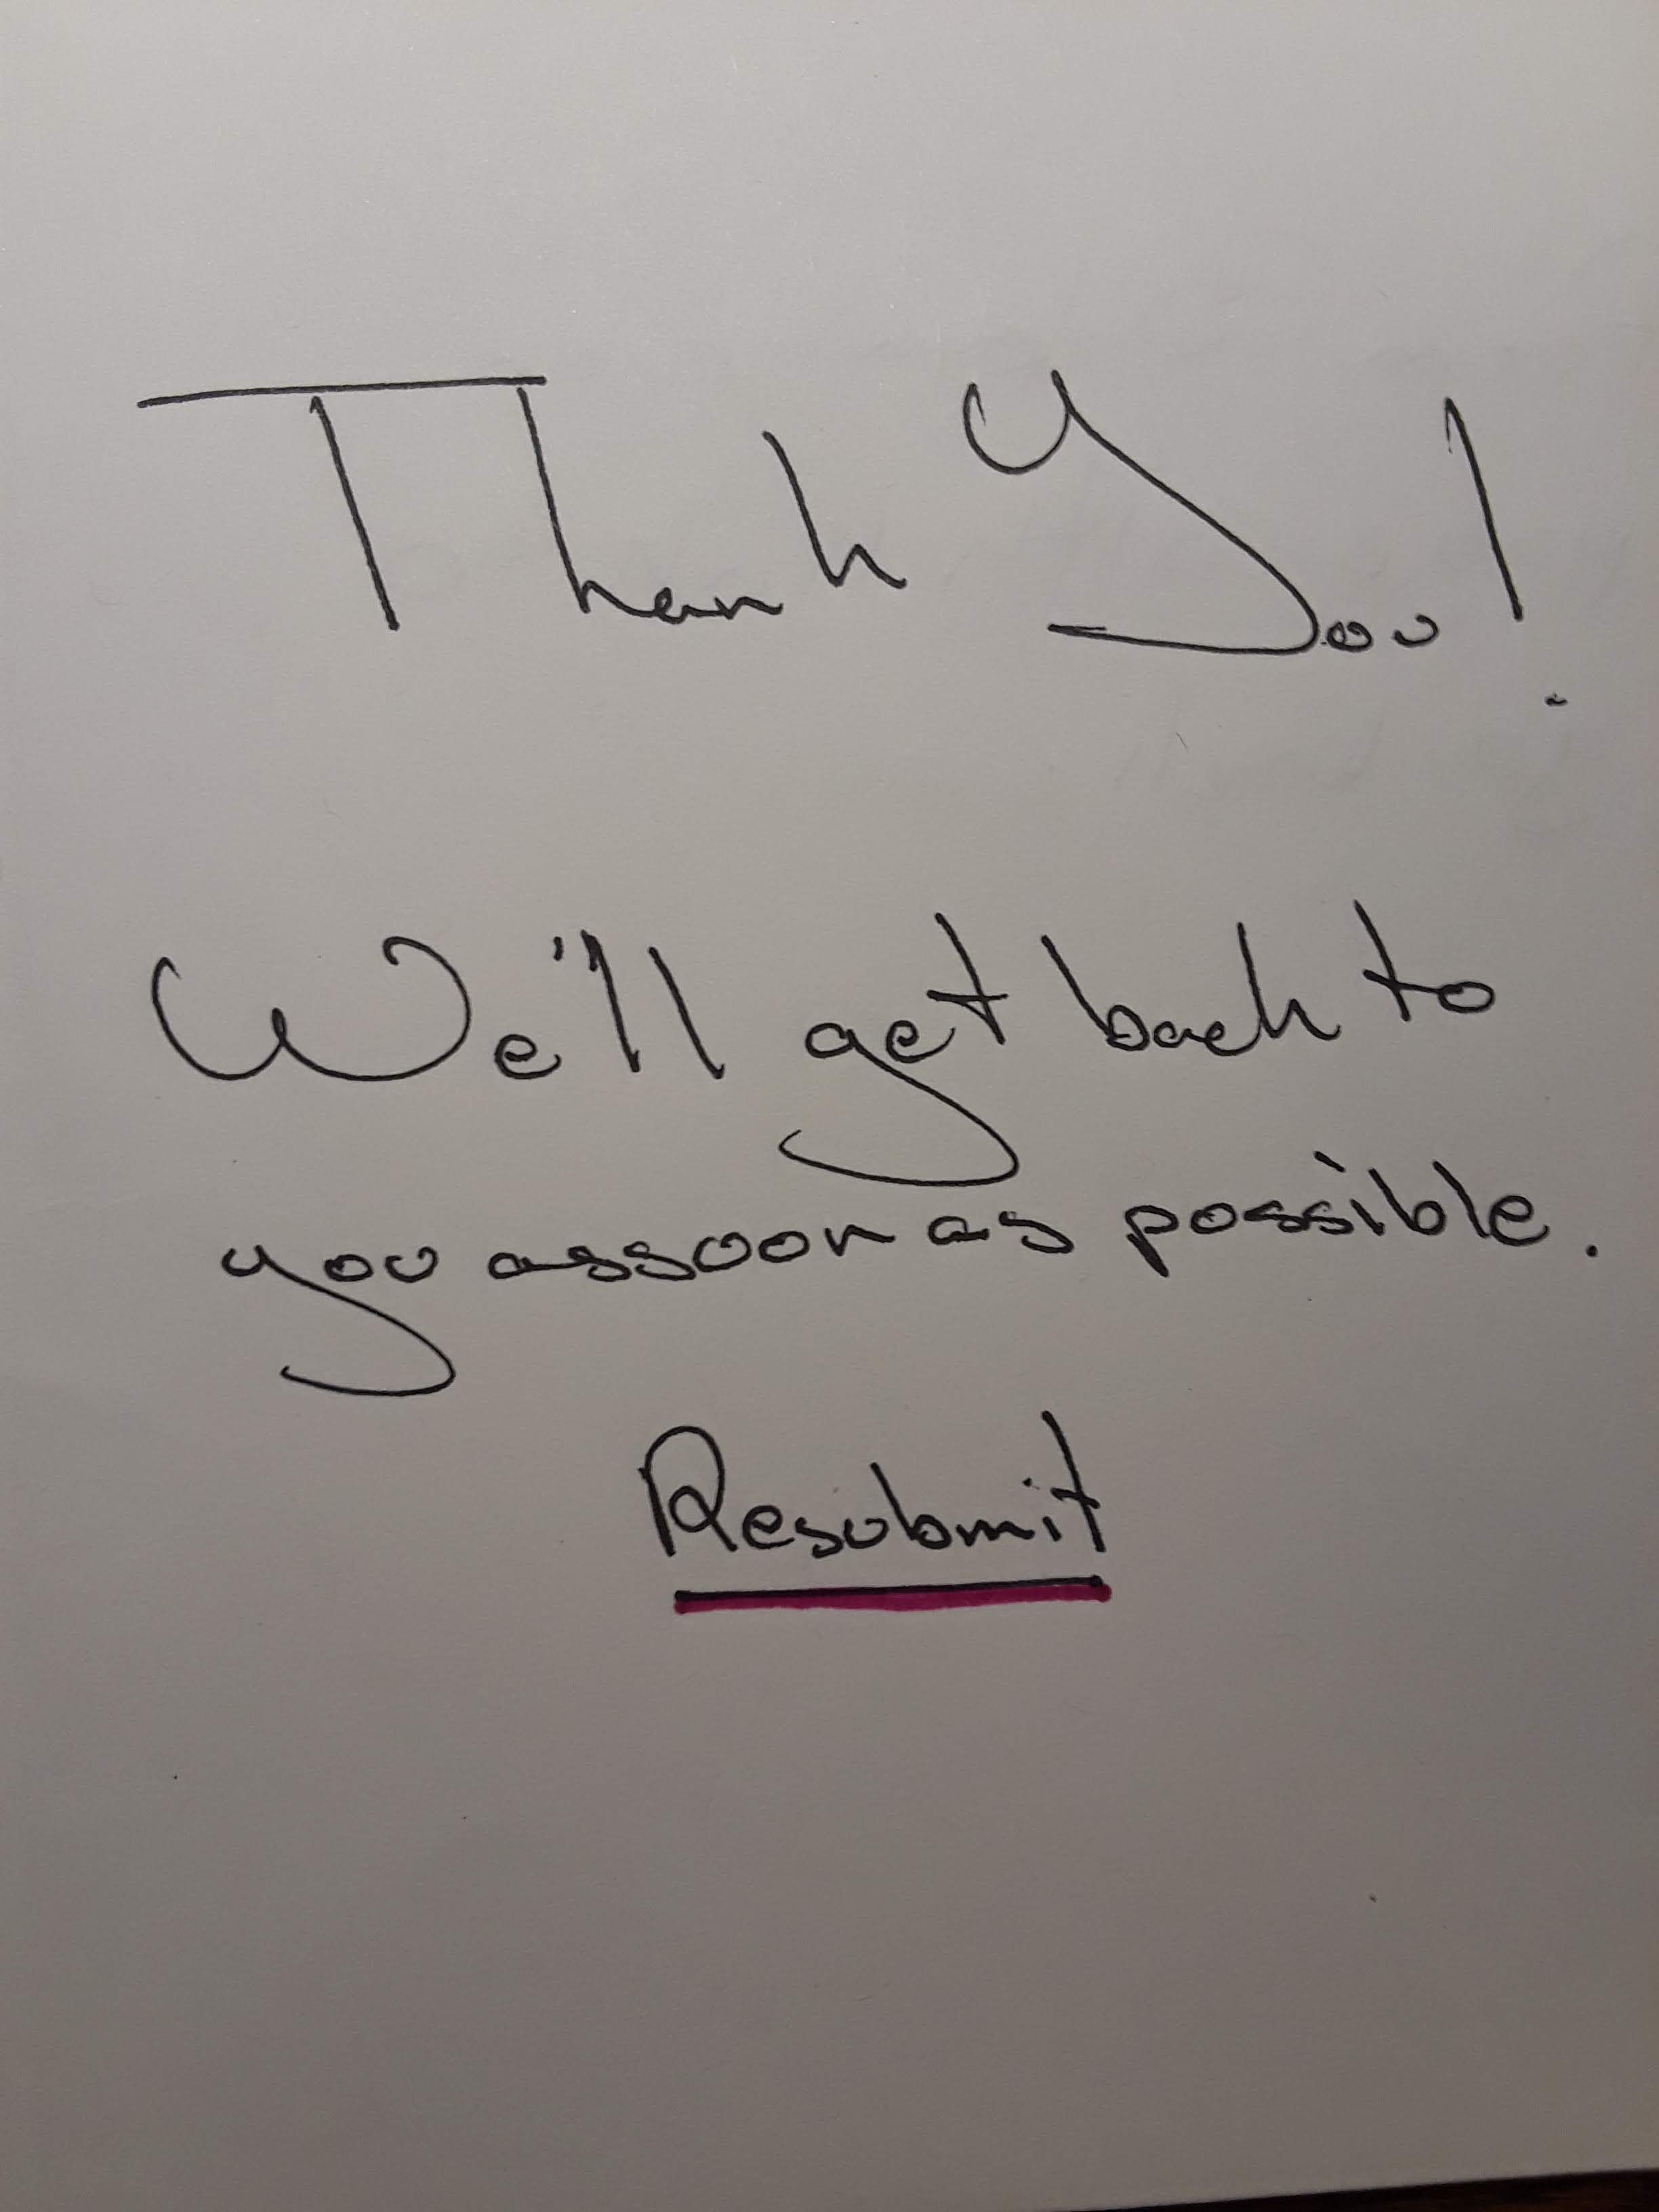 Thank You!
We'll get back to
you as soon as possible.
Resubmit